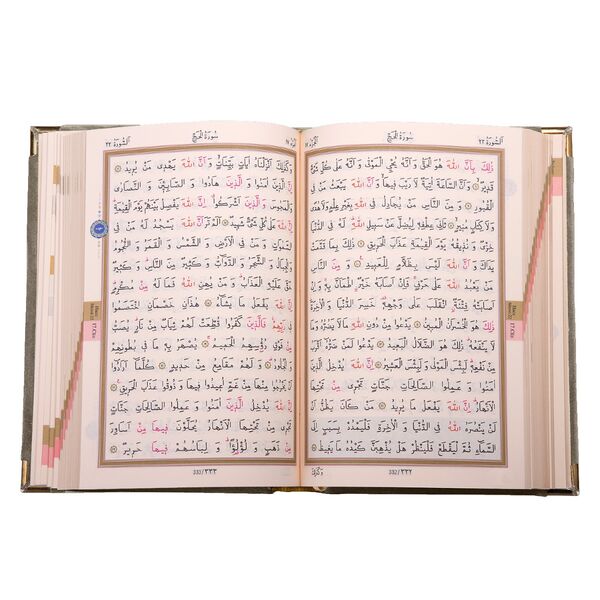 اَلسُّورَةُ ٢٢
سُورَةُ الْحَجِّ
ذٰلِكَ بِاَنَّ اللّٰهَ هُوَ الْحَقُّ وَ اَنَّهُ يُحْيِ الْمَوْتٰى وَ اَنَّهُ عَلٰى كُلِّ شَيْءٍ
قَدِيرٌ ۞ وَ اَنَّ السَّاعَةَ اٰتِيَةٌ لَا رَيْبَ فِيهَا وَ اَنَّ اللّٰهَ يَبْعَثُ مَنْ فِي
الْقُبُورِ ۞ وَ مِنَ النَّاسِ مَنْ يُجَادِلُ فِي اللّٰهِ بِغَيْرِ عِلْمٍ وَ لَا هُدًى
وَ لَا كِتَابٍ مُنِيرٍ ۞ ثَانِيَ عِطْفِهِ لِيُضِلَّ عَنْ سَبِيلِ اللّٰهِ لَهُ فِي الدُّنْيَا
خِزْيٌ وَ نُذِيقُهُ يَوْمَ الْقِيٰمَةِ عَذَابَ الْحَرِيقِ ۞ ذٰلِكَ بِمَا قَدَّمَتْ
يَدَاكَ وَ اَنَّ اللّٰهَ لَيْسَ بِظَلَّامٍ لِلْعَبِيدِ ۞ وَ مِنَ النَّاسِ مَنْ يَعْبُدُ
اللّٰهَ عَلٰى حَرْفٍ فَاِنْ اَصَابَهُ خَيْرٌ اطْمَاَنَّ بِهِ وَ اِنْ
اَصَابَتْهُ فِتْنَةٌ انْقَلَبَ عَلٰى وَجْهِهِ خَسِرَ الدُّنْيَا وَ الْاٰخِرَةَ
ذٰلِكَ هُوَ الْخُسْرَانُ الْمُبِينُ ۞ يَدْعُوا مِنْ دُونِ اللّٰهِ مَا لَا يَضُرُّهُ وَ مَا
لَا يَنْفَعُهُ ذٰلِكَ هُوَ الضَّلَالُ الْبَعِيدُ ۞ يَدْعُوا لَمَنْ ضَرُّهُ اَقْرَبُ
مِنْ نَفْعِهِ لَبِئْسَ الْمَوْلٰى وَ لَبِئْسَ الْعَشِيرُ ۞ اِنَّ اللّٰهَ يُدْخِلُ الَّذِينَ
اٰمَنُوا وَ عَمِلُوا الصَّالِحَاتِ جَنَّاتٍ تَجْرِي مِنْ تَحْتِهَا
الْاَنْهَارُ اِنَّ اللّٰهَ يَفْعَلُ مَا يُرِيدُ ۞ مَنْ كَانَ يَظُنُّ اَنْ لَنْ
يَنْصُرَهُ اللّٰهُ فِي الدُّنْيَا وَ الْاٰخِرَةِ فَلْيَمْدُدْ بِسَبَبٍ اِلَى
السَّمَاءِ ثُمَّ لْيَقْطَعْ فَلْيَنْظُرْ هَلْ يُذْهِبَنَّ كَيْدُهُ مَا يَغِيظُ
332/٣٣٢
وَكَذٰلِكَ
اَلسُّورَةُ ٢٢
سُورَةُ الْحَجِّ
وَ كَذٰلِكَ اَنْزَلْنَاهُ اٰيَاتٍ بَيِّنَاتٍ وَ اَنَّ اللّٰهَ يَهْدِي مَنْ يُرِيدُ ۞
اِنَّ الَّذِينَ اٰمَنُوا وَ الَّذِينَ هَادُوا وَ الصَّابِئِينَ وَ النَّصَارٰى
وَ الْمَجُوسَ وَ الَّذِينَ اَشْرَكُوا اِنَّ اللّٰهَ يَفْصِلُ بَيْنَهُمْ يَوْمَ الْقِيٰمَةِ
اِنَّ اللّٰهَ عَلٰى كُلِّ شَيْءٍ شَهِيدٌ ۞ اَلَمْ تَرَ اَنَّ اللّٰهَ يَسْجُدُ لَهُ مَنْ فِي
السَّمٰوَاتِ وَ مَنْ فِي الْاَرْضِ وَ الشَّمْسُ وَ الْقَمَرُ وَ النُّجُومُ
وَ الْجِبَالُ وَ الشَّجَرُ وَ الدَّوَابُّ وَ كَثِيرٌ مِنَ النَّاسِ وَ كَثِيرٌ
حَقَّ عَلَيْهِ الْعَذَابُ وَ مَنْ يُهِنِ اللّٰهُ فَمَا لَهُ مِنْ مُكْرِمٍ
اِنَّ اللّٰهَ يَفْعَلُ مَا يَشَاءُ ۞ هٰذَانِ خَصْمَانِ اخْتَصَمُوا
فِي رَبِّهِمْ فَالَّذِينَ كَفَرُوا قُطِّعَتْ لَهُمْ ثِيَابٌ مِنْ نَارٍ يُصَبُّ
مِنْ فَوْقِ رُؤُسِهِمُ الْحَمِيمُ ۞ يُصْهَرُ بِهِ مَا فِي بُطُونِهِمْ
وَ الْجُلُودُ ۞ وَ لَهُمْ مَقَامِعُ مِنْ حَدِيدٍ ۞ كُلَّمَا اَرَادُوا
اَنْ يَخْرُجُوا مِنْهَا مِنْ غَمٍّ اُعِيدُوا فِيهَا وَ ذُوقُوا عَذَابَ الْحَرِيقِ ۞
اِنَّ اللّٰهَ يُدْخِلُ الَّذِينَ اٰمَنُوا وَ عَمِلُوا الصَّالِحَاتِ جَنَّاتٍ
تَجْرِي مِنْ تَحْتِهَا الْاَنْهَارُ يُحَلَّوْنَ فِيهَا مِنْ اَسَاوِرَ
مِنْ ذَهَبٍ وَ لُؤْلُؤًا وَ لِبَاسُهُمْ فِيهَا حَرِيرٌ ۞
333/٣٣٣